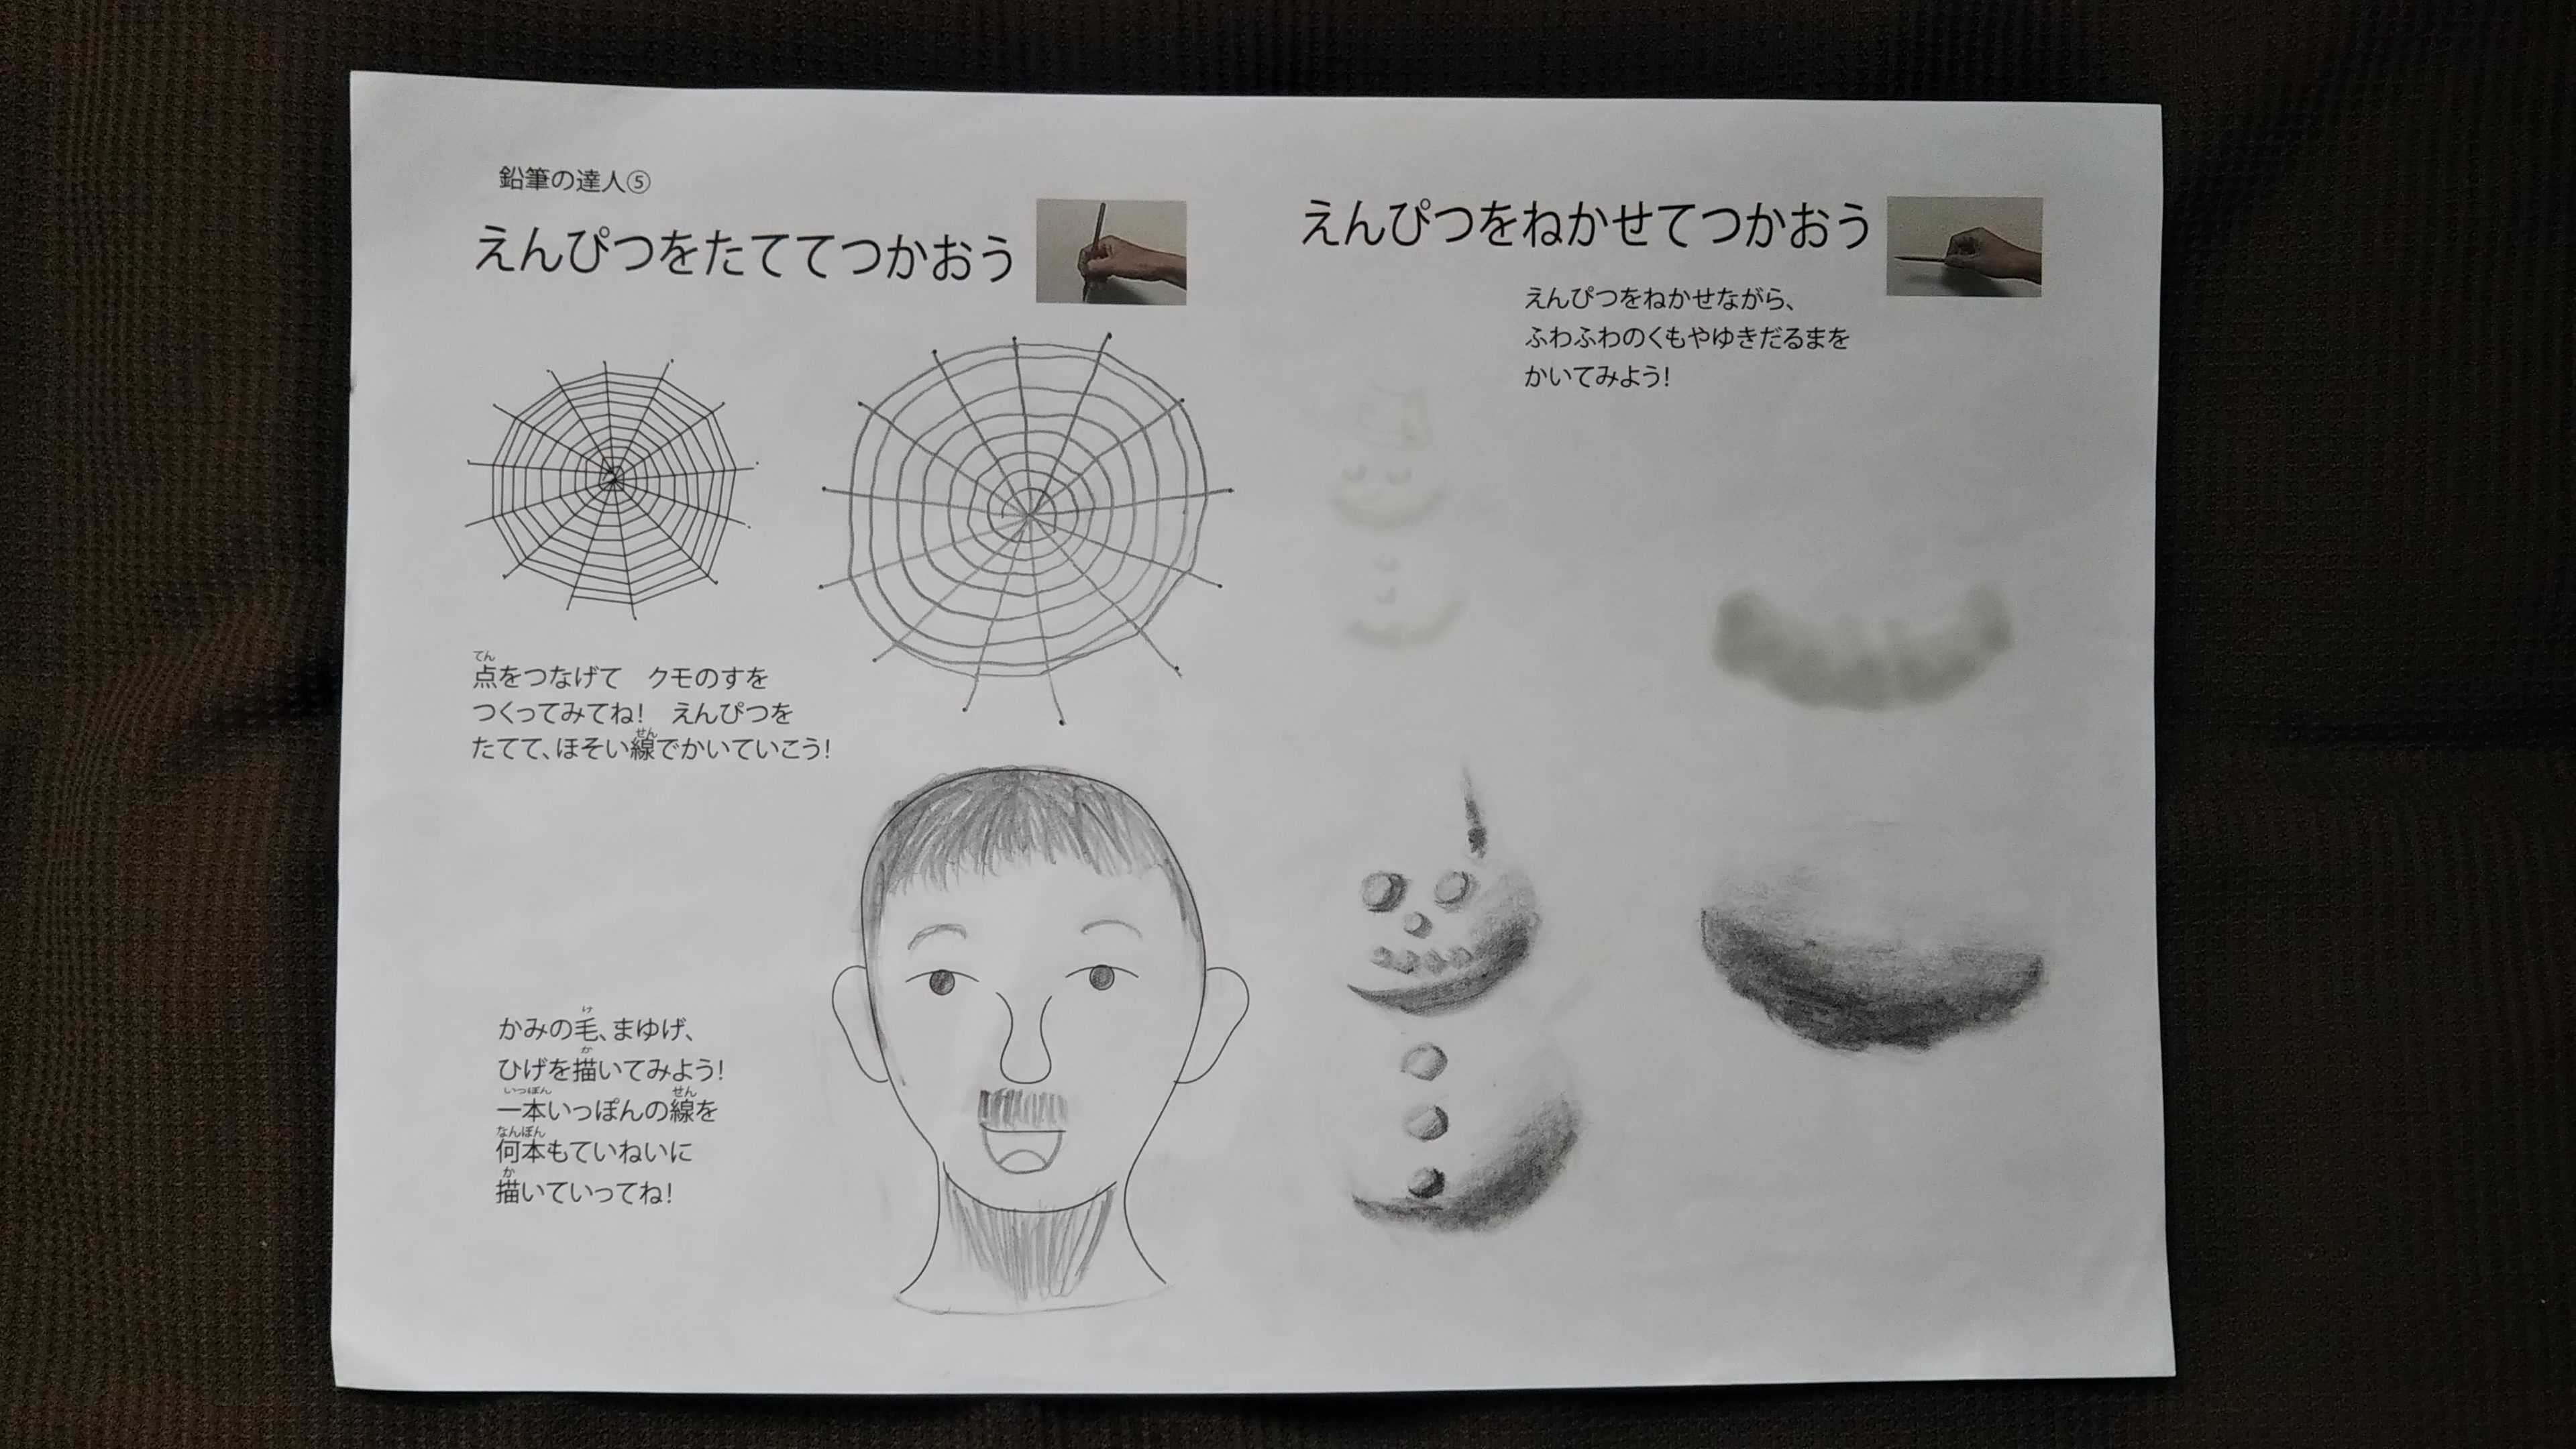 鉛筆の達人⑤
えんぴつをたててつかおう
てん
点をつなげて　クモのすを
つくってみてね!　えんぴつを
せん
たてて、ほそい線でかいていこう!
け
かみの毛、まゆげ、
か
ひげを描いてみよう!
いっぽん　せん
一本いっぽんの線を
なんぼん
何本もていねいに
か
描いていってね!
えんぴつをねかせてつかおう
えんぴつをねかせながら、
ふわふわのくもやゆきだるまを
かいてみよう!